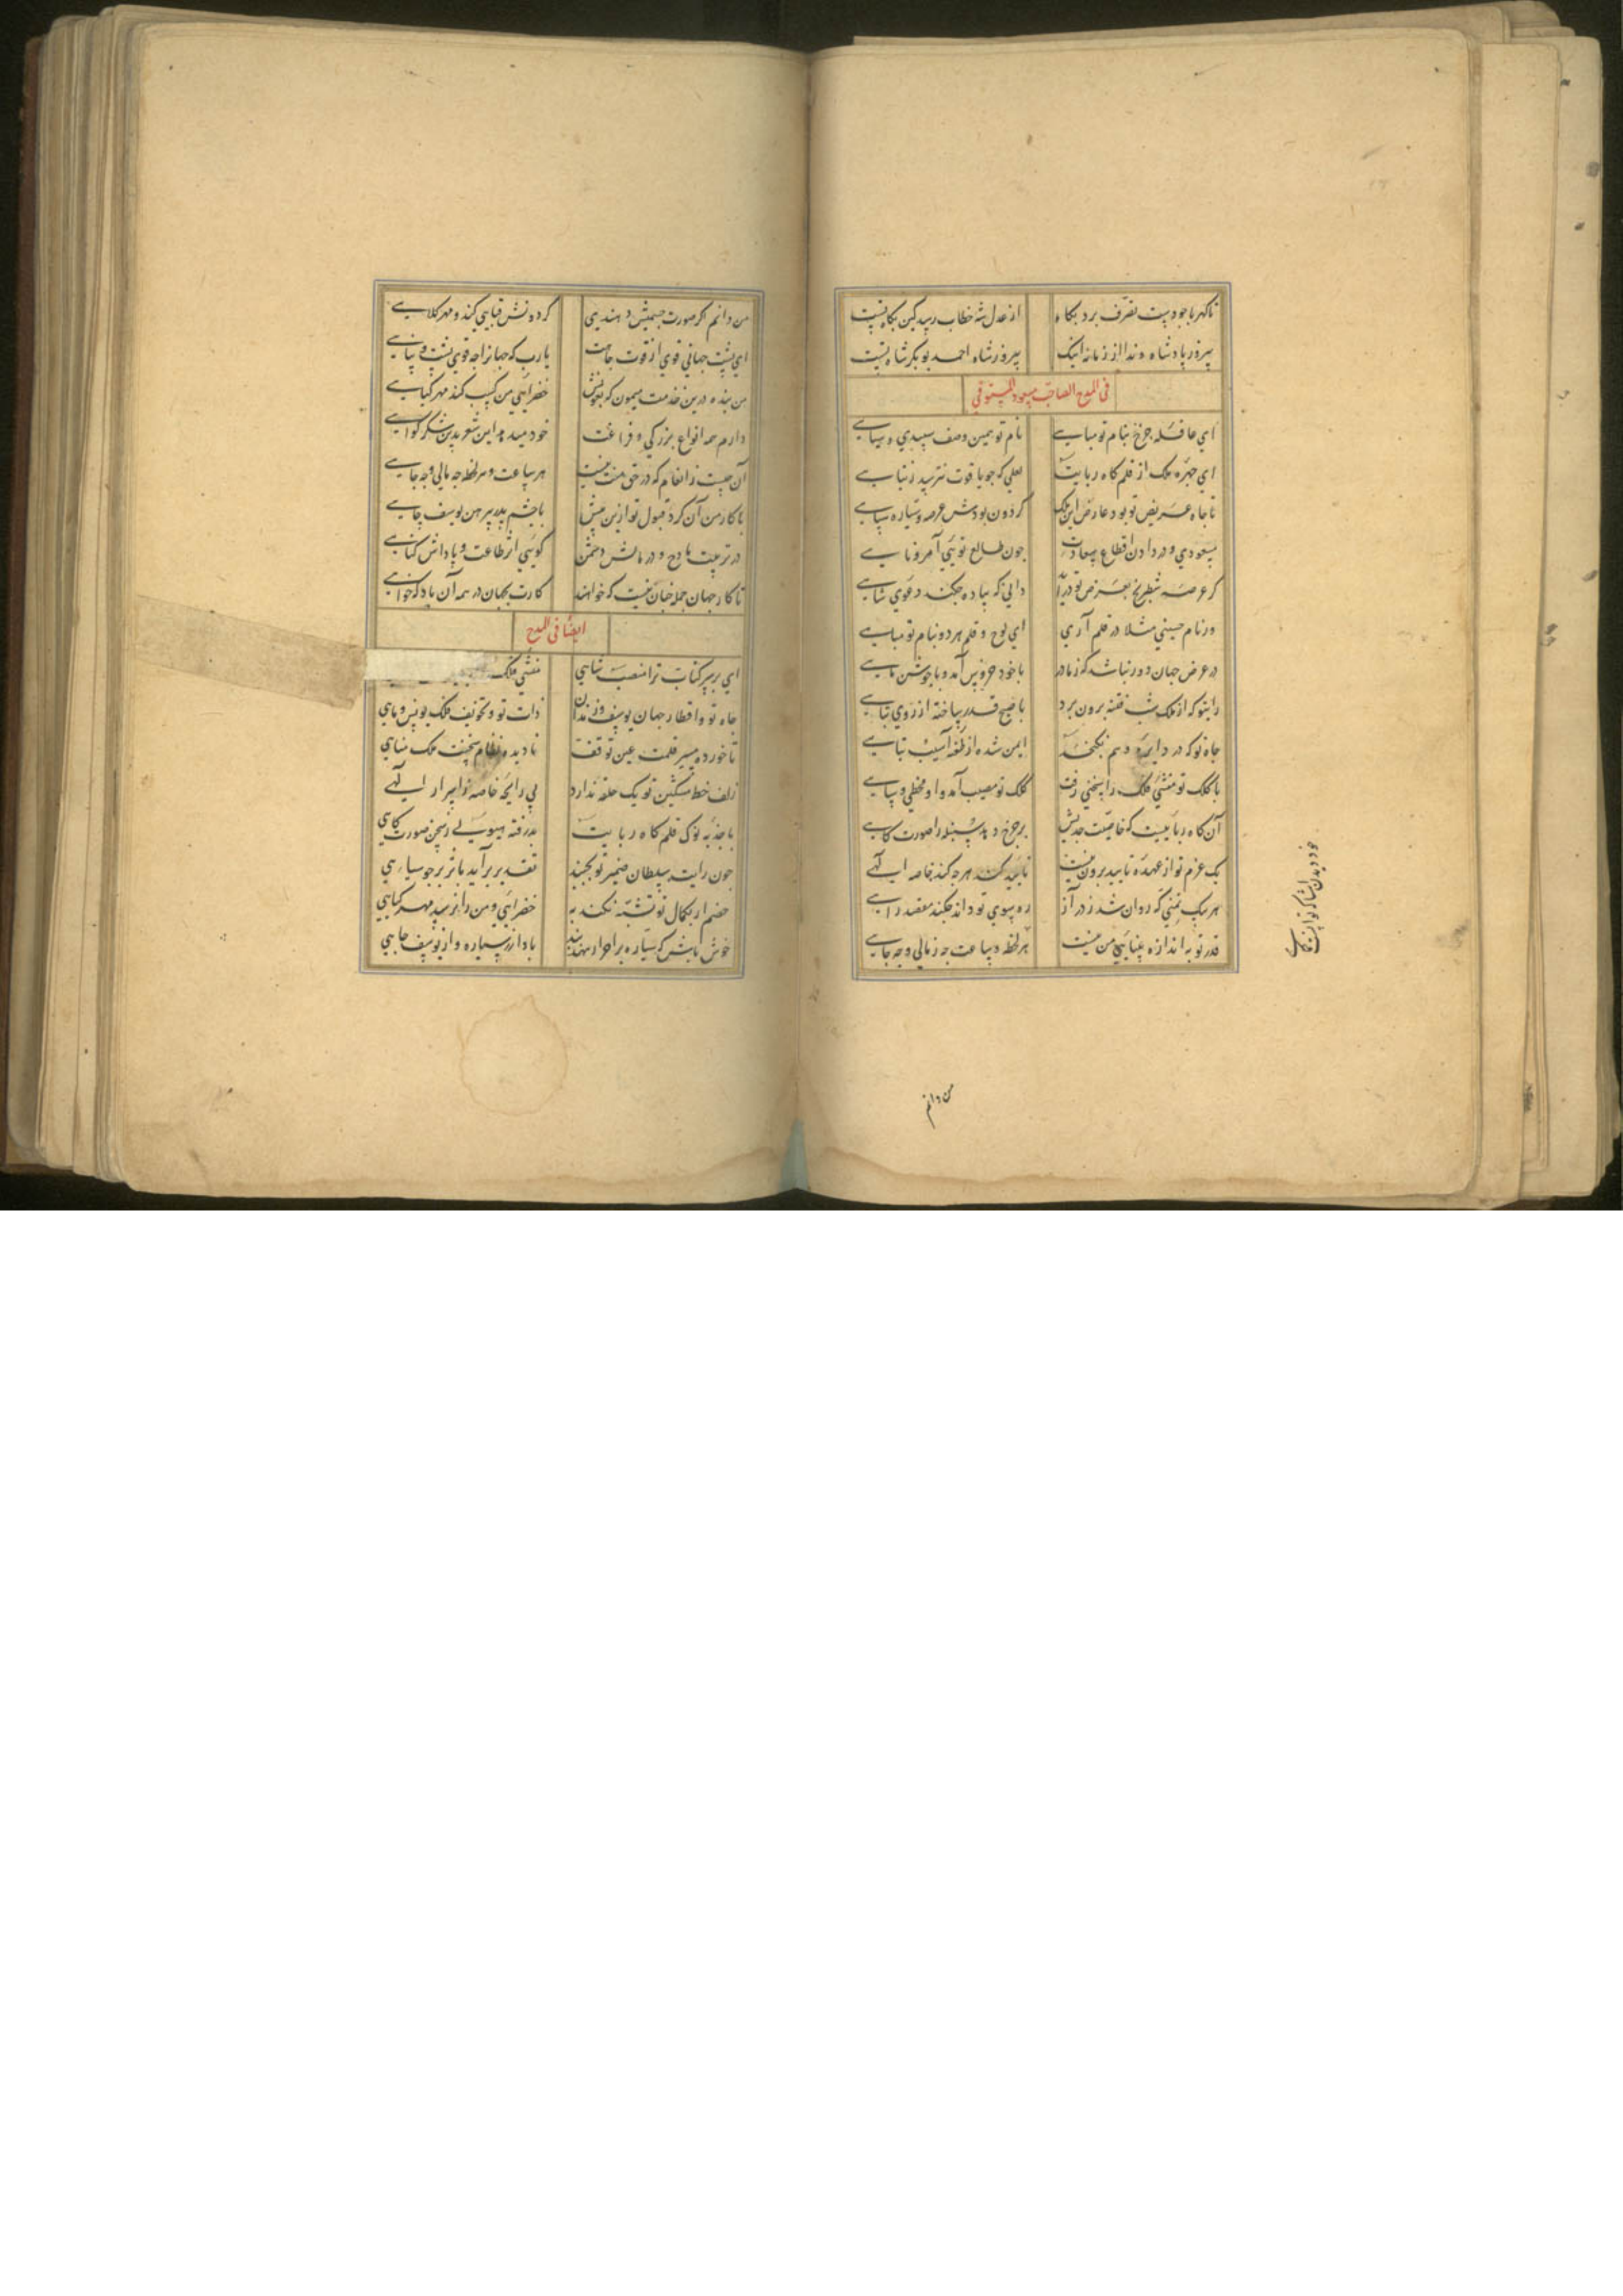 تا کهربا جو دست تصرف برد بکاه
از عدل شه خطاب رسد کین بکاه نیست
پیروز پادشاه و ندا از زمانه اینک
پیروزشاه احمد بوبکر شاه نیست
فی المدح الصاحب مسعود المستوفی
ای عاقله جرخ بنام تو مباهی
نام تو بهین وصف سپیدی و سیاهی
ای جهره ملک از قلم کاه ربایت
لعلی که جو یاقوت نترسد ز تباهی
تا جاه عریض تو بود عارض این ملک
کردون بودش عرصه و سیاره سپاهی
مسعودی و در دادن اقطاع سعادت
جون طالع تویی آمر و ناهی
کر عرصه شطرنج بعرض تو درآید
دانی که پیاده جکند دعوی شاهی
ور نام حسینی مثلا در قلم آری
ای لوح و قلم هر دو بنام تو مباهی
در عرض جهان دور نباشد که ز مادر
با خود خروس آمد و با جوشن ماهی
رای تو که از ملک شب فتنه برون برد
با صبح قدر ساخته از روی تباهی
جاه تو که در دایره وهم نکنجد
ایمن شده از طعنه آسیب تباهی
با کلک تو منشی فلک را سخنی رفت
کلک تو مصیب آمد و او مخطی و ساهی
آن کاه رباییست که خاصیت جذبش
بر جرخ دهد سنبله را صورت کاهی
یک عزم تو از عهده تایید برون نیست
تایید کند هرجه کند خاصه الهی
هر پیک تمنی که روان شد ز در آز
ره سوی تو داند جکند مقصد راهی
قدر تو به اندازه بینایی من نیست
هر لحظه و ساعت جه ز مالی و جه جاهی
خود دیدن اشیا که تواند کماهی
من دانم
من دانم اکر صورت جسمیش دهندی
کردونش قبایی کند و مهر کلاهی
ای پشت جهانی قوی از قوت جاهت
یارب که جهانرا جه قوی پشت و پناهی
من بنده درین خدمت میمون که بعونش
خضرایی من کسب کند مهر کیاهی
دارم همه انواع بزرکی و فراغت
خود میدهد این شعر بدین شکر کواهی
آن جیست ز انعام که در حق منت نیست
هر ساعت و هر لحظه جه مالی و جه جاهی
با کار من آن کرد قبول تو ازین پیش
با جشم پدر پیرهن یوسف جاهی
در تربیت مادح و در مالش دشمن
کویی اثر طاعت و پاداش کناهی
تا کار جهان جمله جنان نیست که خواهند
کارت بجهان در همه آن باد که خواهی
ایضا فی المدح
ای بر سر کتاب ترا منصب شاهی
منشی فلک
جاه تو و اقطار جهان یوسف و زندان
ذات تو و تجویف فلک یونس و ماهی
تا خورده مسیر قلمت عین توقف
نادیده نظام سخنت ملک مناهی
زلف خط مشکین تو یک حلقه ندارد
بی رایحه خاصه ز اسرار الهی
با جذبه نوک قلم کاه ربایت
بذرفته هیولی ز سخن صورت کاهی
جون رایت سلطان ضمیر تو بجنبید
تقدیر برآید باثر بر جو سپاهی
خصم ار بکمال تو تشبه نکند به
خضرایی و من را نرسد مهر کیاهی
خوش باش که سیاره بر احرار نهد بند
یاد آر ز سیاره و از یوسف جاهی